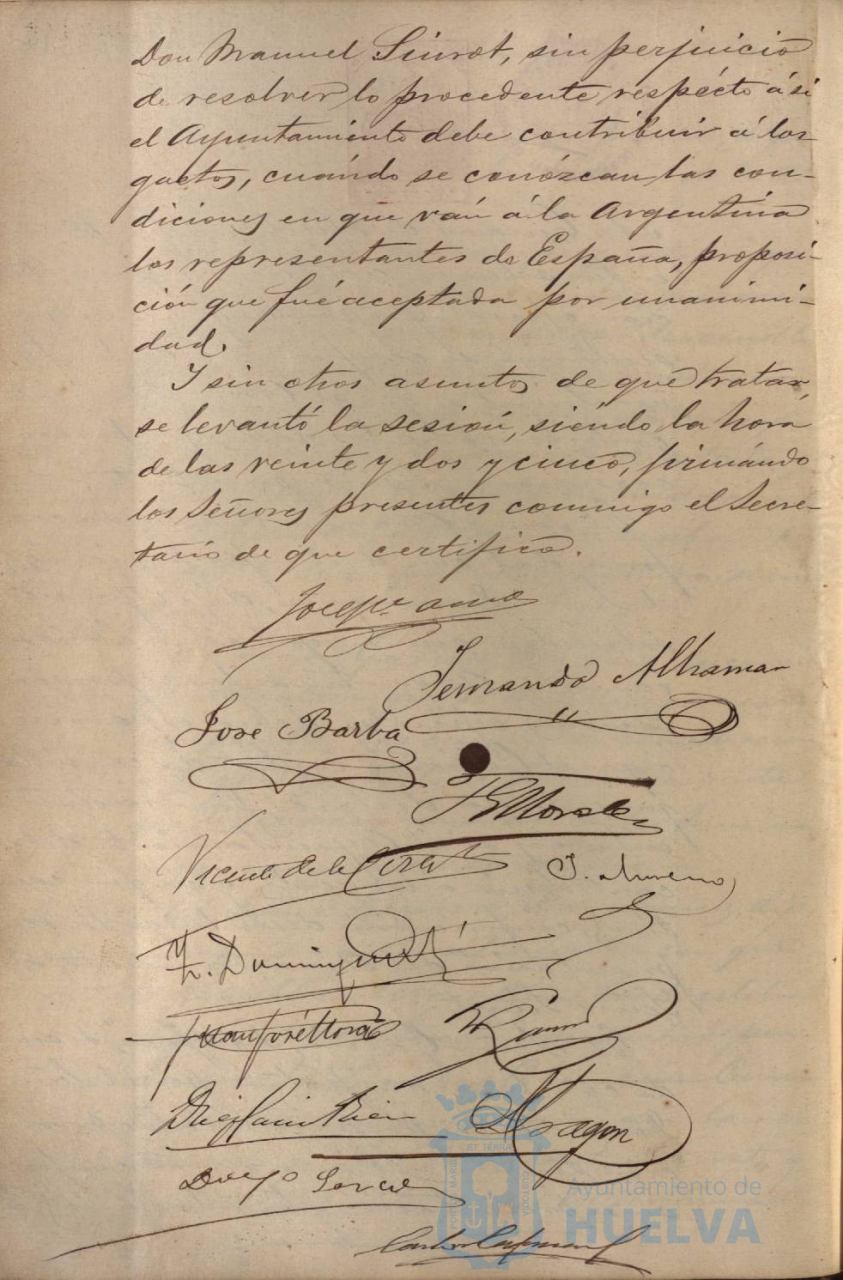 Don Manuel Siurot, sin perjuicio
de resolver lo procedente respécto á si
el Ayuntamiento debe contribuir á los
gastos, cuándo se conózcan las con-
diciones en que ván á la Argentina
los representantes de España, proposi-
ción que fué aceptada por unanimi-
dad.
Y sin otros asuntos de que tratar,
se levantó la sesión, siéndo la hora
de las veinte y dos y cinco, firmándo
los Señores presentes conmigo el Secre-
tario de que certifico.
Fernando Alhamar
José Barba
Morales
Vicente de la
J. Moreno
F. Dominguez
Juan José Mora
Aragon
Diego
Ayuntamiento de
HUELVA